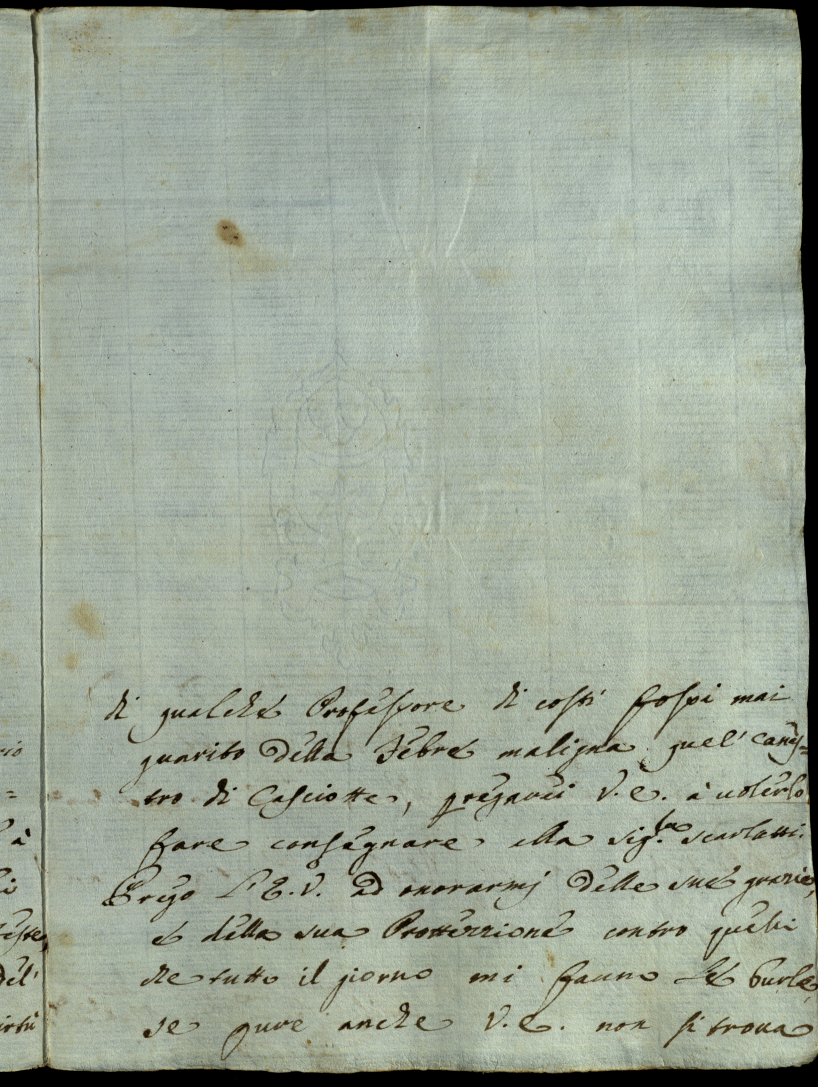 di qualche Professore di costi fossi mai
guarito della Febre maligna quel' Canes=
tro di Casciotte, pregarei V. E. à uolerlo
fare consegnare alla Sig.ra Scarlatti.
Prego l'E. V. ad onorarmj delle sue grazie,
e della sua Prottezzione contro quelli
che tutto il giorno mi fanno le burle,
se pure anche V. E. non si troua